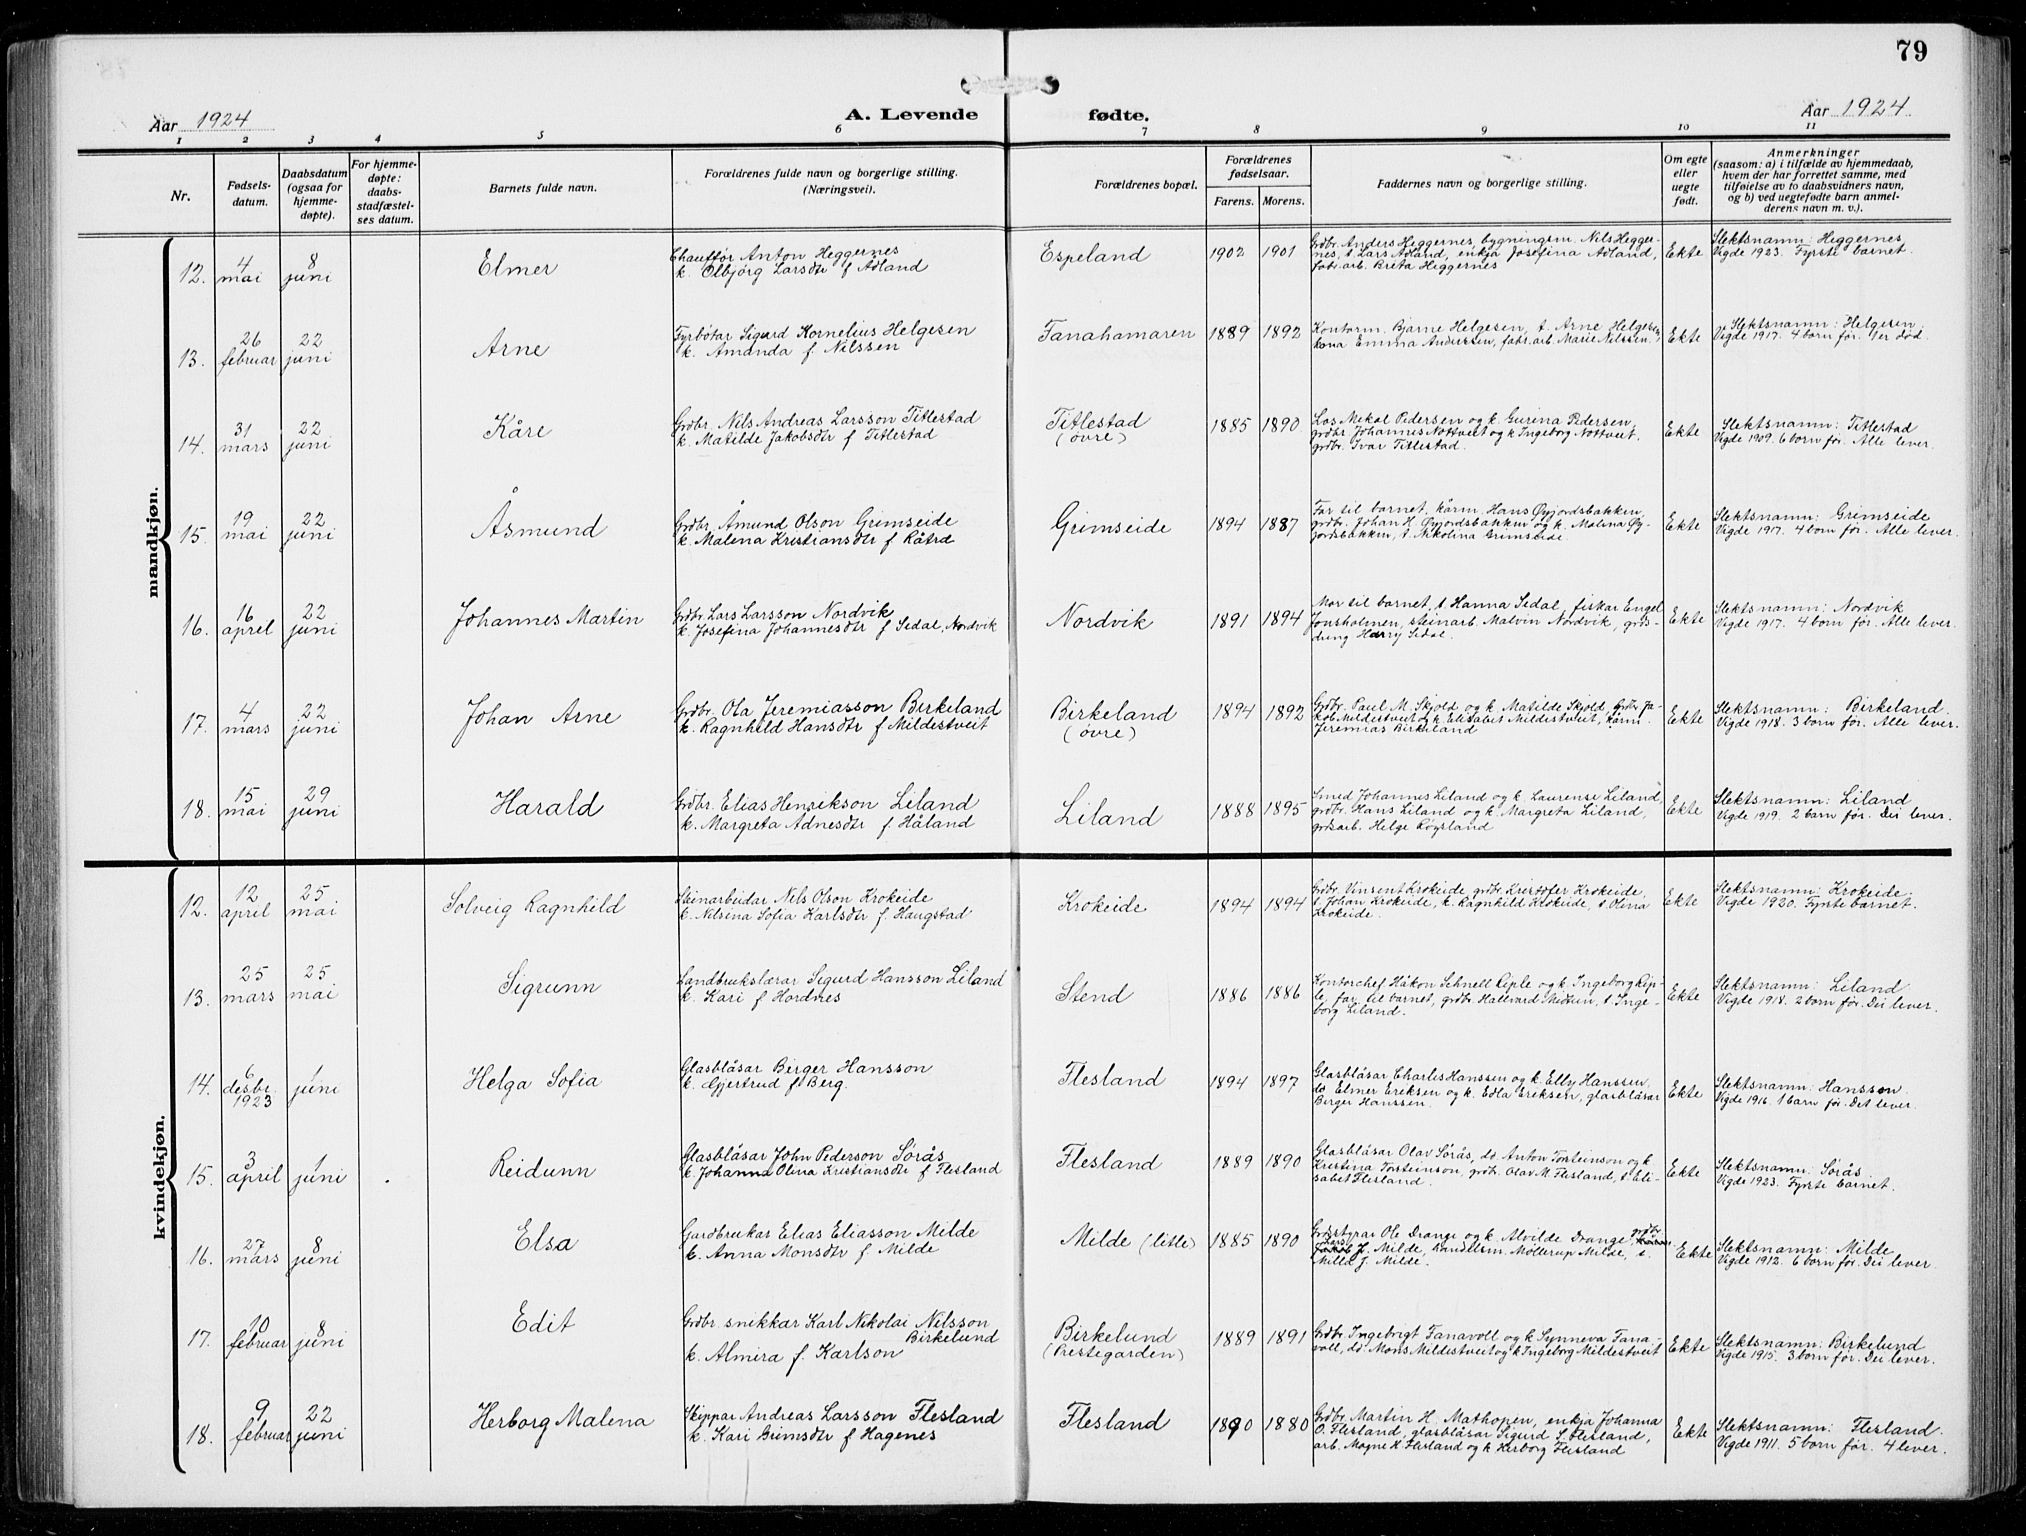 79
Aar 1924
A. Levende fødte.
Aar 1924.
1 2 3 4 5 6 7 8 9 10 11
Nr.
Fødsels-
datum.
Daabsdatum
(ogsaa for
hjemme-
døpte).
For hjemme-
døpte:
daabs-
stadfæstel-
ses datum.
Barnets fulde navn.
Forældrenes fulde navn og borgerlige stilling.
(Næringsvei).
Forældrenes bopæl.
Forældrenes
fødselsaar.
Farens. Morens.
Faddernes navn og borgerlige stilling.
Om egte
eller
uegte
født.
Anmerkninger
(saasom: a) i tilfælde av hjemmedaab,
hvem der har forrettet samme, med
tilføielse av to daabsvidners navn,
og b) ved uegtefødte barn anmel-
derens navn m. v.).
mandkjøn.
12. 4 mai 8 juni Elmer
Chauffør Anton Heggernes
k. Olbjörg Larsdtr f Ådland
Espeland 1902 1901
Grdbr. Anders Heggernes, bygningsm. Nils Hegger-
nes, t. Lars Ådland, enkja Josefina Ådland,
fabr.arb. Brita Heggernes
Ekte
Slektsnamn: Heggernes
Vigde 1923. Fyrste barnet.
13. 26 februar 22 juni Arne
Fyrbötar Sigurd Kornelius Helgesen
k. Amanda f. Nilssen
Fanahamaren 1889 1892
Kontorm. Bjarne Helgesen, t. Arne Helgesen,
kona Emma Anderssen, fabr.arb. Marie Nilssen.
Ekte
Slektsnamn: Helgesen.
Vigde 1917. 4 born før. 1 er død.
14. 31 mars 22 juni Kåre
Grdbr. Nils Andreas Larsson Titlestad
k. Matilde Jakobsdtr f Titlestad
Titlestad
(øvre)
1885 1890
Los Mikal Pedersen og k. Gurina Pedersen,
grdbr. Johannes Nottveit og k Ingeborg Nottveit,
grdbr. Ivar Titlestad.
Ekte
Slektsnamn: Titlestad
Vigde 1909. 6 born før. Alle lever.
15. 19 mai 22 juni Åsmund
Grdbr. Åmund Olson Grimseide
k. Malena Kristiansdtr f Råtræ
Grimseide 1894 1887
Far til barnet, kårm. Hans Øyjordsbakken,
grdbr. Johan H. Øyjordsbakken og k. Malina Øy-
jordsbakken, t. Nikolina Grimseide.
Ekte
Slektsnamn: Grimseide
Vigde 1917. 4 born før. Alle lever.
16. 16 april 22 juni Johannes Martin
Grdbr. Lars Larsson Nordvik
k. Josefina Johannesdtr f Sedal, Nordvik
Nordvik 1891 1894
Mor til barnet, t. Hanna Sedal, fiskar Engel
Jonsholmen, steinarb. Malvin Nordvik, grds-
dreng Harry Sedal.
Ekte
Slektsnamn: Nordvik
Vigde 1917. 4 born før. Alle lever.
17. 4 mars 22 juni Johan Arne
Grdbr. Ola Jeremiasson Birkeland
k. Ragnhild Hansdtr f Mildestveit
Birkeland
(øvre)
1894 1892
Grdbr. Paul M. Skjold og k. Matilde Skjold, grdbr Ja-
kob Mildestveit og k. Elisabet Mildestveit, kårm.
Jeremias Birkeland
Ekte
Slektsnamn: Birkeland.
Vigde 1918. 3 born før. Alle lever.
18. 15 mai 29 juni Harald
Grdbr. Elias Henrikson Liland
k. Margreta Adnesdtr f. Håland
Liland 1888 1895
Smed Johannes Liland og k. Laurense Liland,
grdbr. Hans Liland og k. Margreta Liland,
grdsarb. Helge Røysland
Ekte
Slektsnamn: Liland
Vigde 1919. 2 barn før. Dei lever.
kvindekjøn.
12. 12 april 25 mai Solveig Ragnhild
Steinarbeidar Nils Olson Krokeide
k. Nilsina Sofia Karlsdtr f. Haugstad
Krokeide 1894 1894
Grdbr. Vinsent Krokeide, grdbr. Kristofer Krokeide,
t. Johan Krokeide, k. Ragnhild Krokeide, t. Olina
Krokeide.
Ekte
Slektsnamn: Krokeide.
Vigde 1920. Fyrste barnet.
13. 25 mars 25 mai Sigrunn
Landbrukslærar Sigurd Hansson Liland
k. Kari f Hordnes
Stend 1886 1886
Kontorchef Håkon Schnell Riple og k. Ingeborg Rip-
le, far til barnet, grdbr. Hallvard Midtun, t. Inge-
borg Liland.
Ekte
Slektsnamn: Liland
Vigde 1918. 2 born før. Dei lever.
14. 6 desbr. 1923 1 juni Helga Sofia
Glasblåsar Birger Hansson
k. Gjertrud f Berg.
Flesland 1894 1897
Glasblåsar Charles Hanssen og k. Elly Hanssen,
do Elmer Eriksen og k. Edla Eriksen, glasblåsar
Birger Hanssen.
Ekte
Slektsnamn: Hansson.
Vigde 1916. 1 barn før. Det lever.
15. 3 april 1 juni Reidunn
Glasblåsar John Pederson Sørås
k. Johanna Olina Kristiansdtr f Flesland
Flesland 1889 1890
Glasblåsar Olav Sørås, do Anton Torsteinson og k
Kristina Torsteinson, grdbr. Olav M. Flesland, t. Eli-
sabet Flesland.
Ekte
Slektsnamn: Sørås
Vigde 1923. Fyrste barnet.
16. 27 mars 8 juni Elsa
Gardbrukar Elias Eliasson Milde
k. Anna Monsdtr f Milde
Milde (litle) 1885 1890
Ole Drange og k. Alvilde Drange, grdbr
Lars J. Milde, handlsm. Møllerup Milde, t.
Milla J. Milde.
Ekte
Slektsnamn: Milde
Vigde 1912. 6 born før. Dei lever.
17. 10 februar 8 juni Edit
Grdbr. snikkar Karl Nikolai Nilsson
Birkelund
k. Almira f. Karlson
Birkelund
(Prestegarden)
1889 1891
Grdbr. Ingebrigt Fanavoll og k Synneva Fana-
voll, do. Mons Mildestveit og k Ingeborg Mildestveit
Ekte
Slektsnamn: Birkelund
Vigde 1915. 3 born før. Dei lever.
18. 9 februar 22 juni Herborg Malena
Skippar Andreas Larsson Flesland
k. Kari Grimsdtr f Hagenes
Flesland 1890 1880
Grdbr. Martin H. Mathopen, enkja Johanna
O. Flesland, glasblåsar Sigurd S. Flesland,
arb. Mogne K. Flesland og k Herborg Flesland
Ekte
Slektsnamn: Flesland.
Vigde 1911. 5 born før. 4 lever.